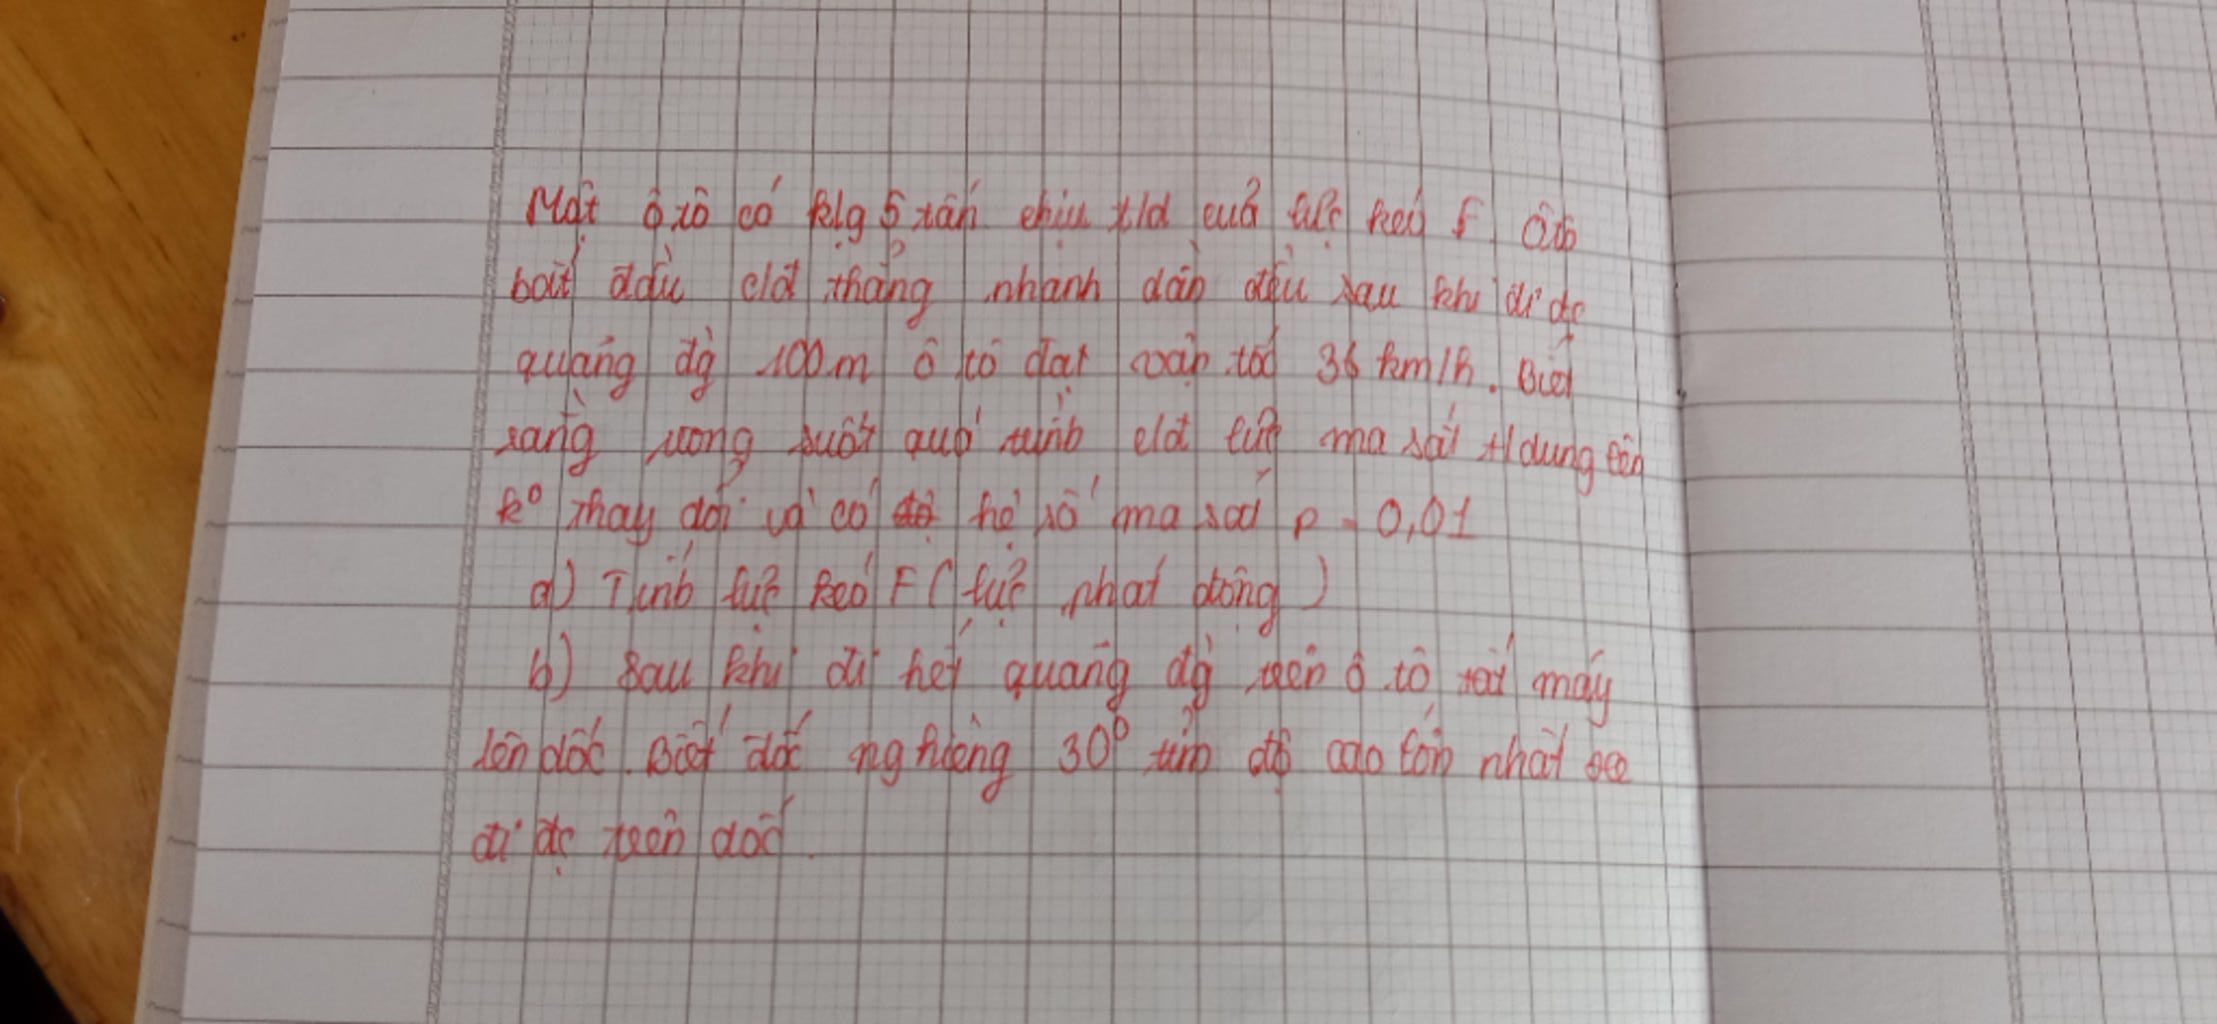 Một ô tô có klg 5 tấn chịu t/d của lực kéo F. Ôtô
bắt đầu c/đ thẳng nhanh dần đều sau khi đi đc
quãng đg 100m ô tô đạt vận tốc 36 km/h. Biết
rằng trong suốt quá trình c/đ lực ma sát t/dung lên
k° thay đổi và có hệ số ma sát μ = 0,01
a) Tính lực kéo F (lực phát động)
b) Sau khi đi hết quãng đg trên ô tô tắt máy
lên dốc. Biết dốc nghiêng 30° tìm độ cao lớn nhất xe
đi đc trên dốc.